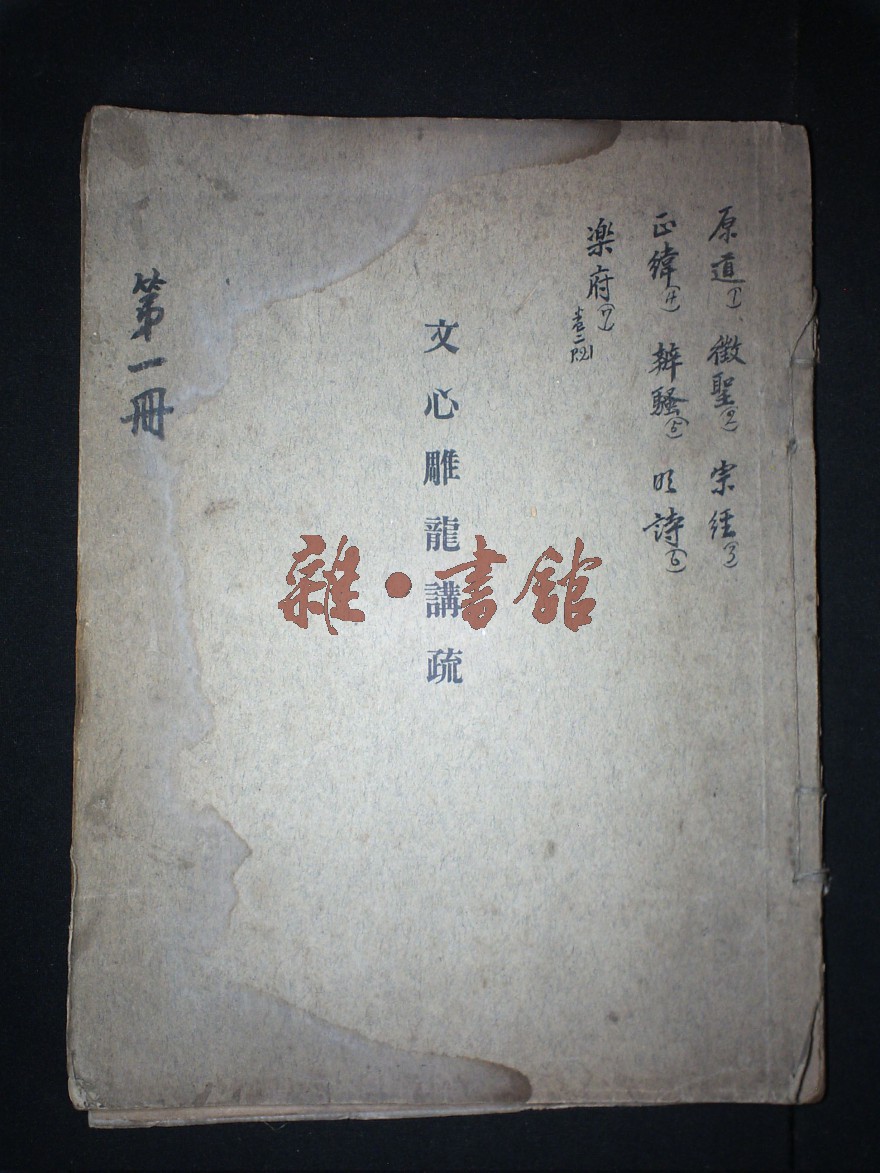 原道(1)、徵聖(2) 宗経(3)
正緯(4) 辨騷(5) 明詩(6)
楽府(7) 卷二 P.21
文心雕龍講疏
第一冊
雜·書館